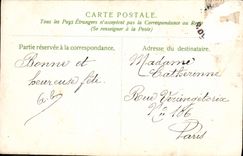 CARTE POSTALE.
Tous les Pays Étrangers n'acceptent pas la Correspondance au Recto
(Se renseigner à la Poste)
Partie réservée à la correspondance.
Adresse du destinataire.
Bonne et
heureuse fête
Madame
Catherinne
Rue Vercingétorix
No 186
Paris